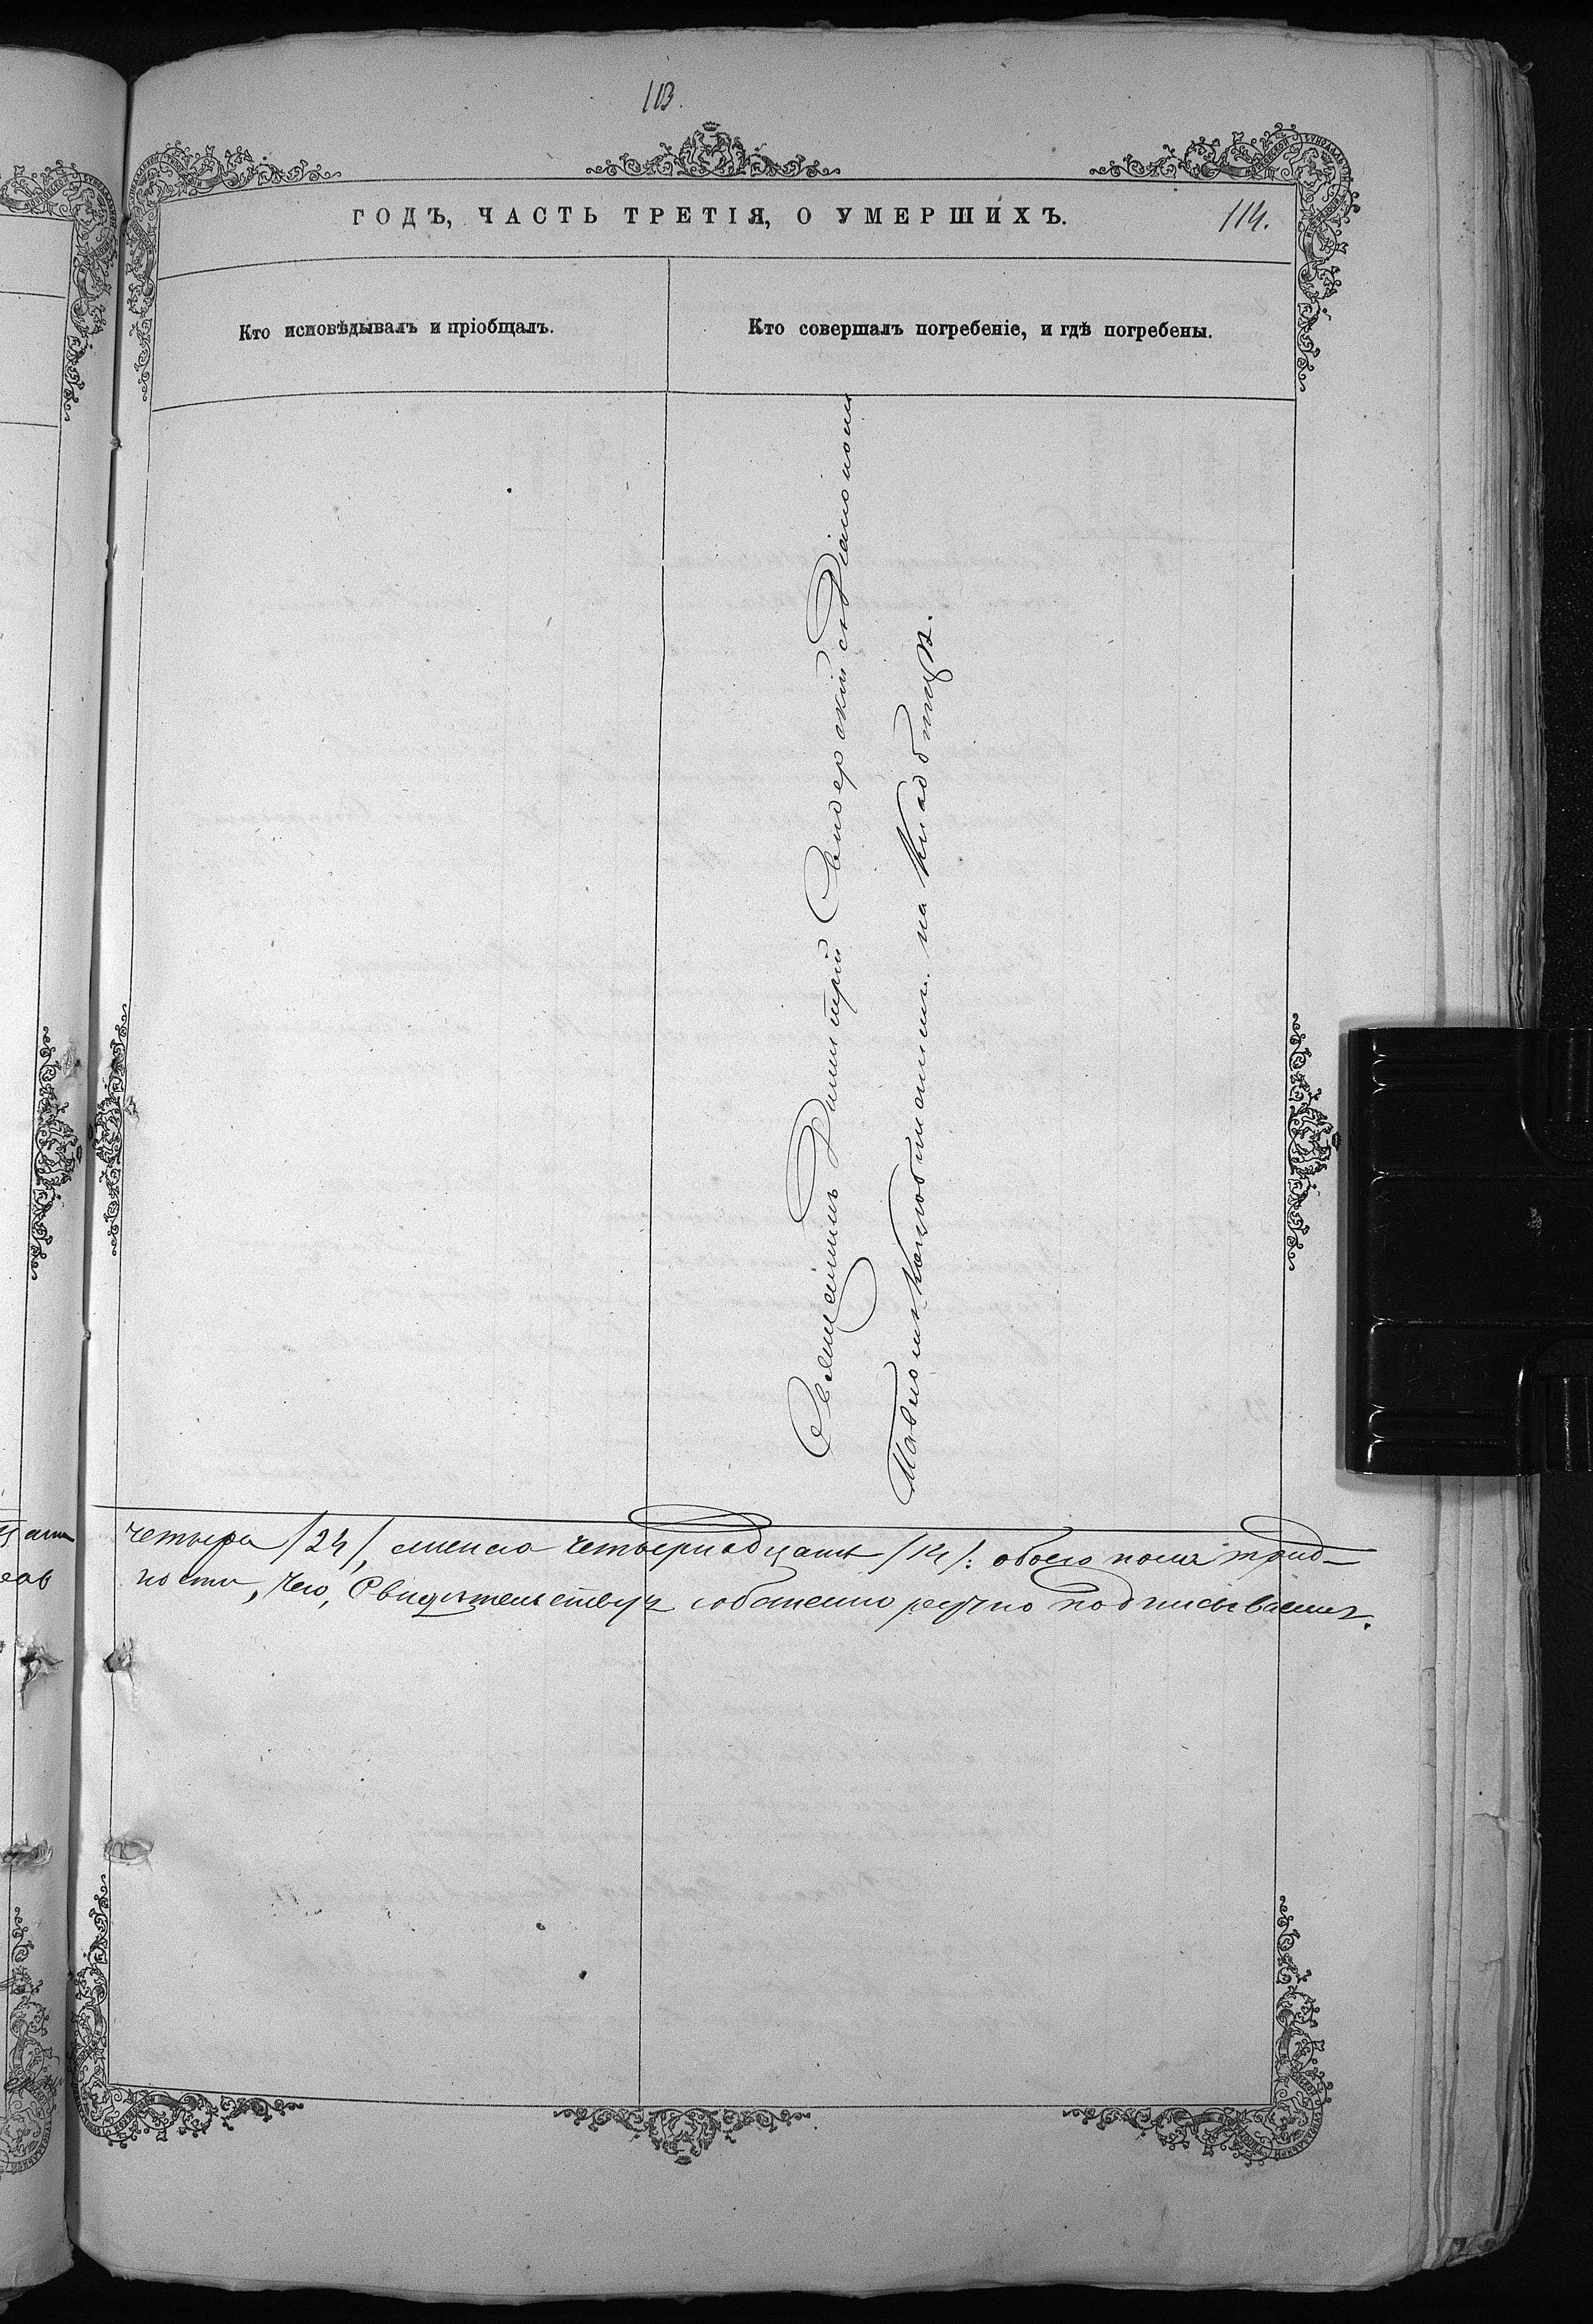 113.
ГОДЪ, ЧАСТЬ ТРЕТІЯ, О УМЕРШИХЪ.
114.
Кто исповѣдывалъ и пріобщалъ.
Кто совершалъ погребеніе, и гдѣ погребены.
Священникъ Димитрій Сиверскій съ Діакономъ
на Кладбищѣ.
четыре /24/, женска четырнадцать /14/: обоего пола трид-
ности, чего, Свидѣтельствуя собственно ручно подписываемъ.